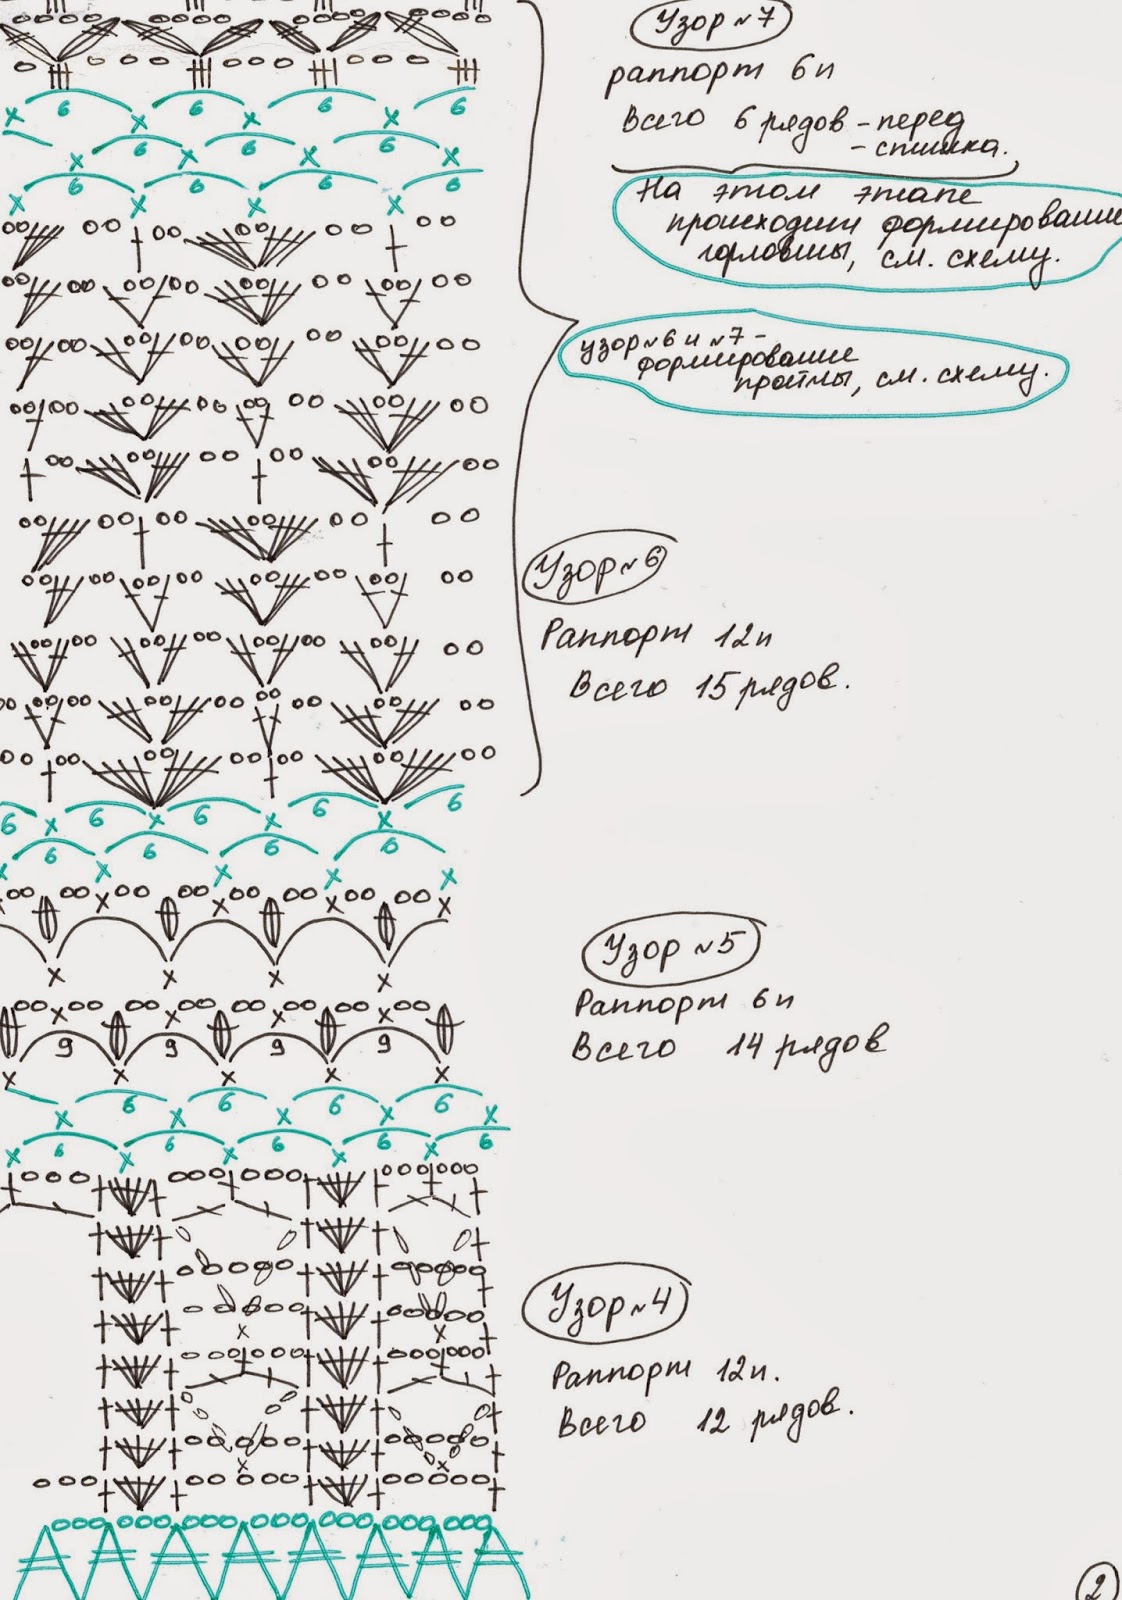 Узор №7
раппорт 6п
Всего 6 рядов - перед
- спинка.
На этом этапе
происходит формирование
горловины, см. схему.
узор №6 и №7 -
формирование
проймы, см. схему.
Узор №6
Раппорт 12п
Всего 15 рядов.
Узор №5
Раппорт 6п
Всего 14 рядов
Узор №4
Раппорт 12п.
Всего 12 рядов.
6 6 6 6
6 6 6
6 6 6 6
6 6 6 6 6
6 6 6 6
9 9 9 9
6 6 6 6
6 6 6 6 6
2